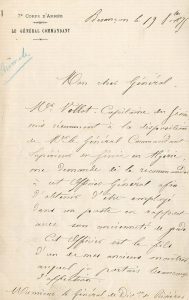 7e CORPS D'ARMÉE
LE GÉNÉRAL COMMANDANT
Besançon le 19
Mon cher Général
Mr. Capitaine du Génie
mis récemment à la disposition
de Mr le Général Commandant
Supérieur du Génie en Algérie
me demande de le recommander
à cet Officier Général afin
d'obtenir d'être employé
dans un poste en rapport
avec son ancienneté de grade
Cet Officier est le fils
d'un de mes anciens
auquel je portais beaucoup
d'affection.
Monsieur le Général de Don